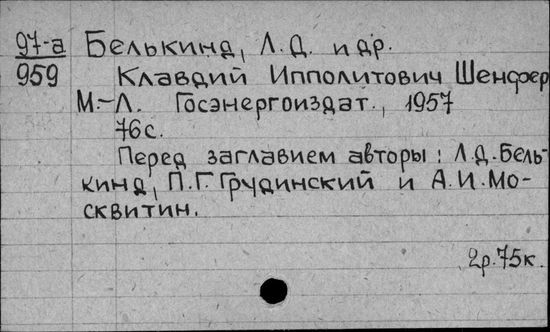 97-а Белькинд, Л.Д. и др.
959 Клавдий Ипполитович Шенфер
М.-Л. Госэнергоиздат., 1957
76с.
Перед заглавием авторы: Л.Д.Бель-
кинд, П.Г.Грудинский и А.И.Мо-
сквитин.
2р.75к.